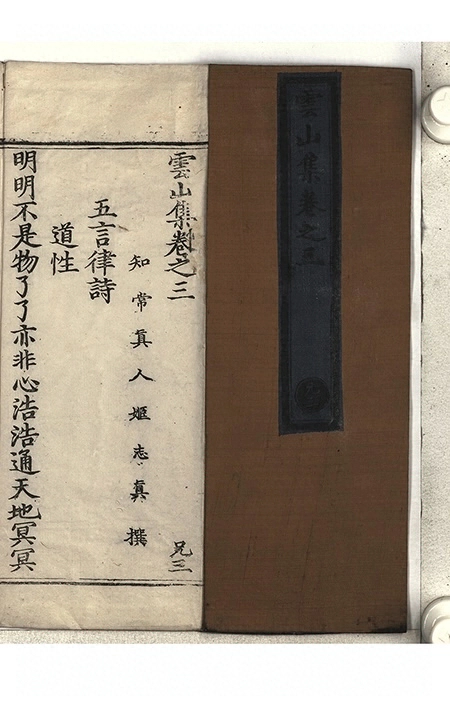 雲山集卷之三
雲山集卷之三 兄三
知常真人姬志真撰
五言律詩
道性
明明不是物了了亦非心浩浩通天地冥冥